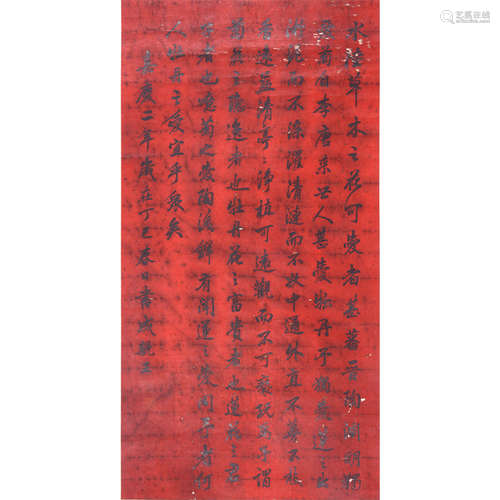 水陸草木之花可愛者甚蕃晉陶淵明獨
愛菊自李唐来世人甚愛牡丹予獨愛蓮之出
淤泥而不染濯清漣而不妖中通外直不蔓不枝
香遠益清亭〻淨植可遠觀而不可褻玩焉予謂
菊花之隱逸者也牡丹花之富貴者也蓮花之君
子者也噫菊之愛陶後鮮有聞蓮之愛同予者何
人牡丹之愛宜乎衆矣
嘉慶二年歲在丁巳春日書成親王
艺狐在线